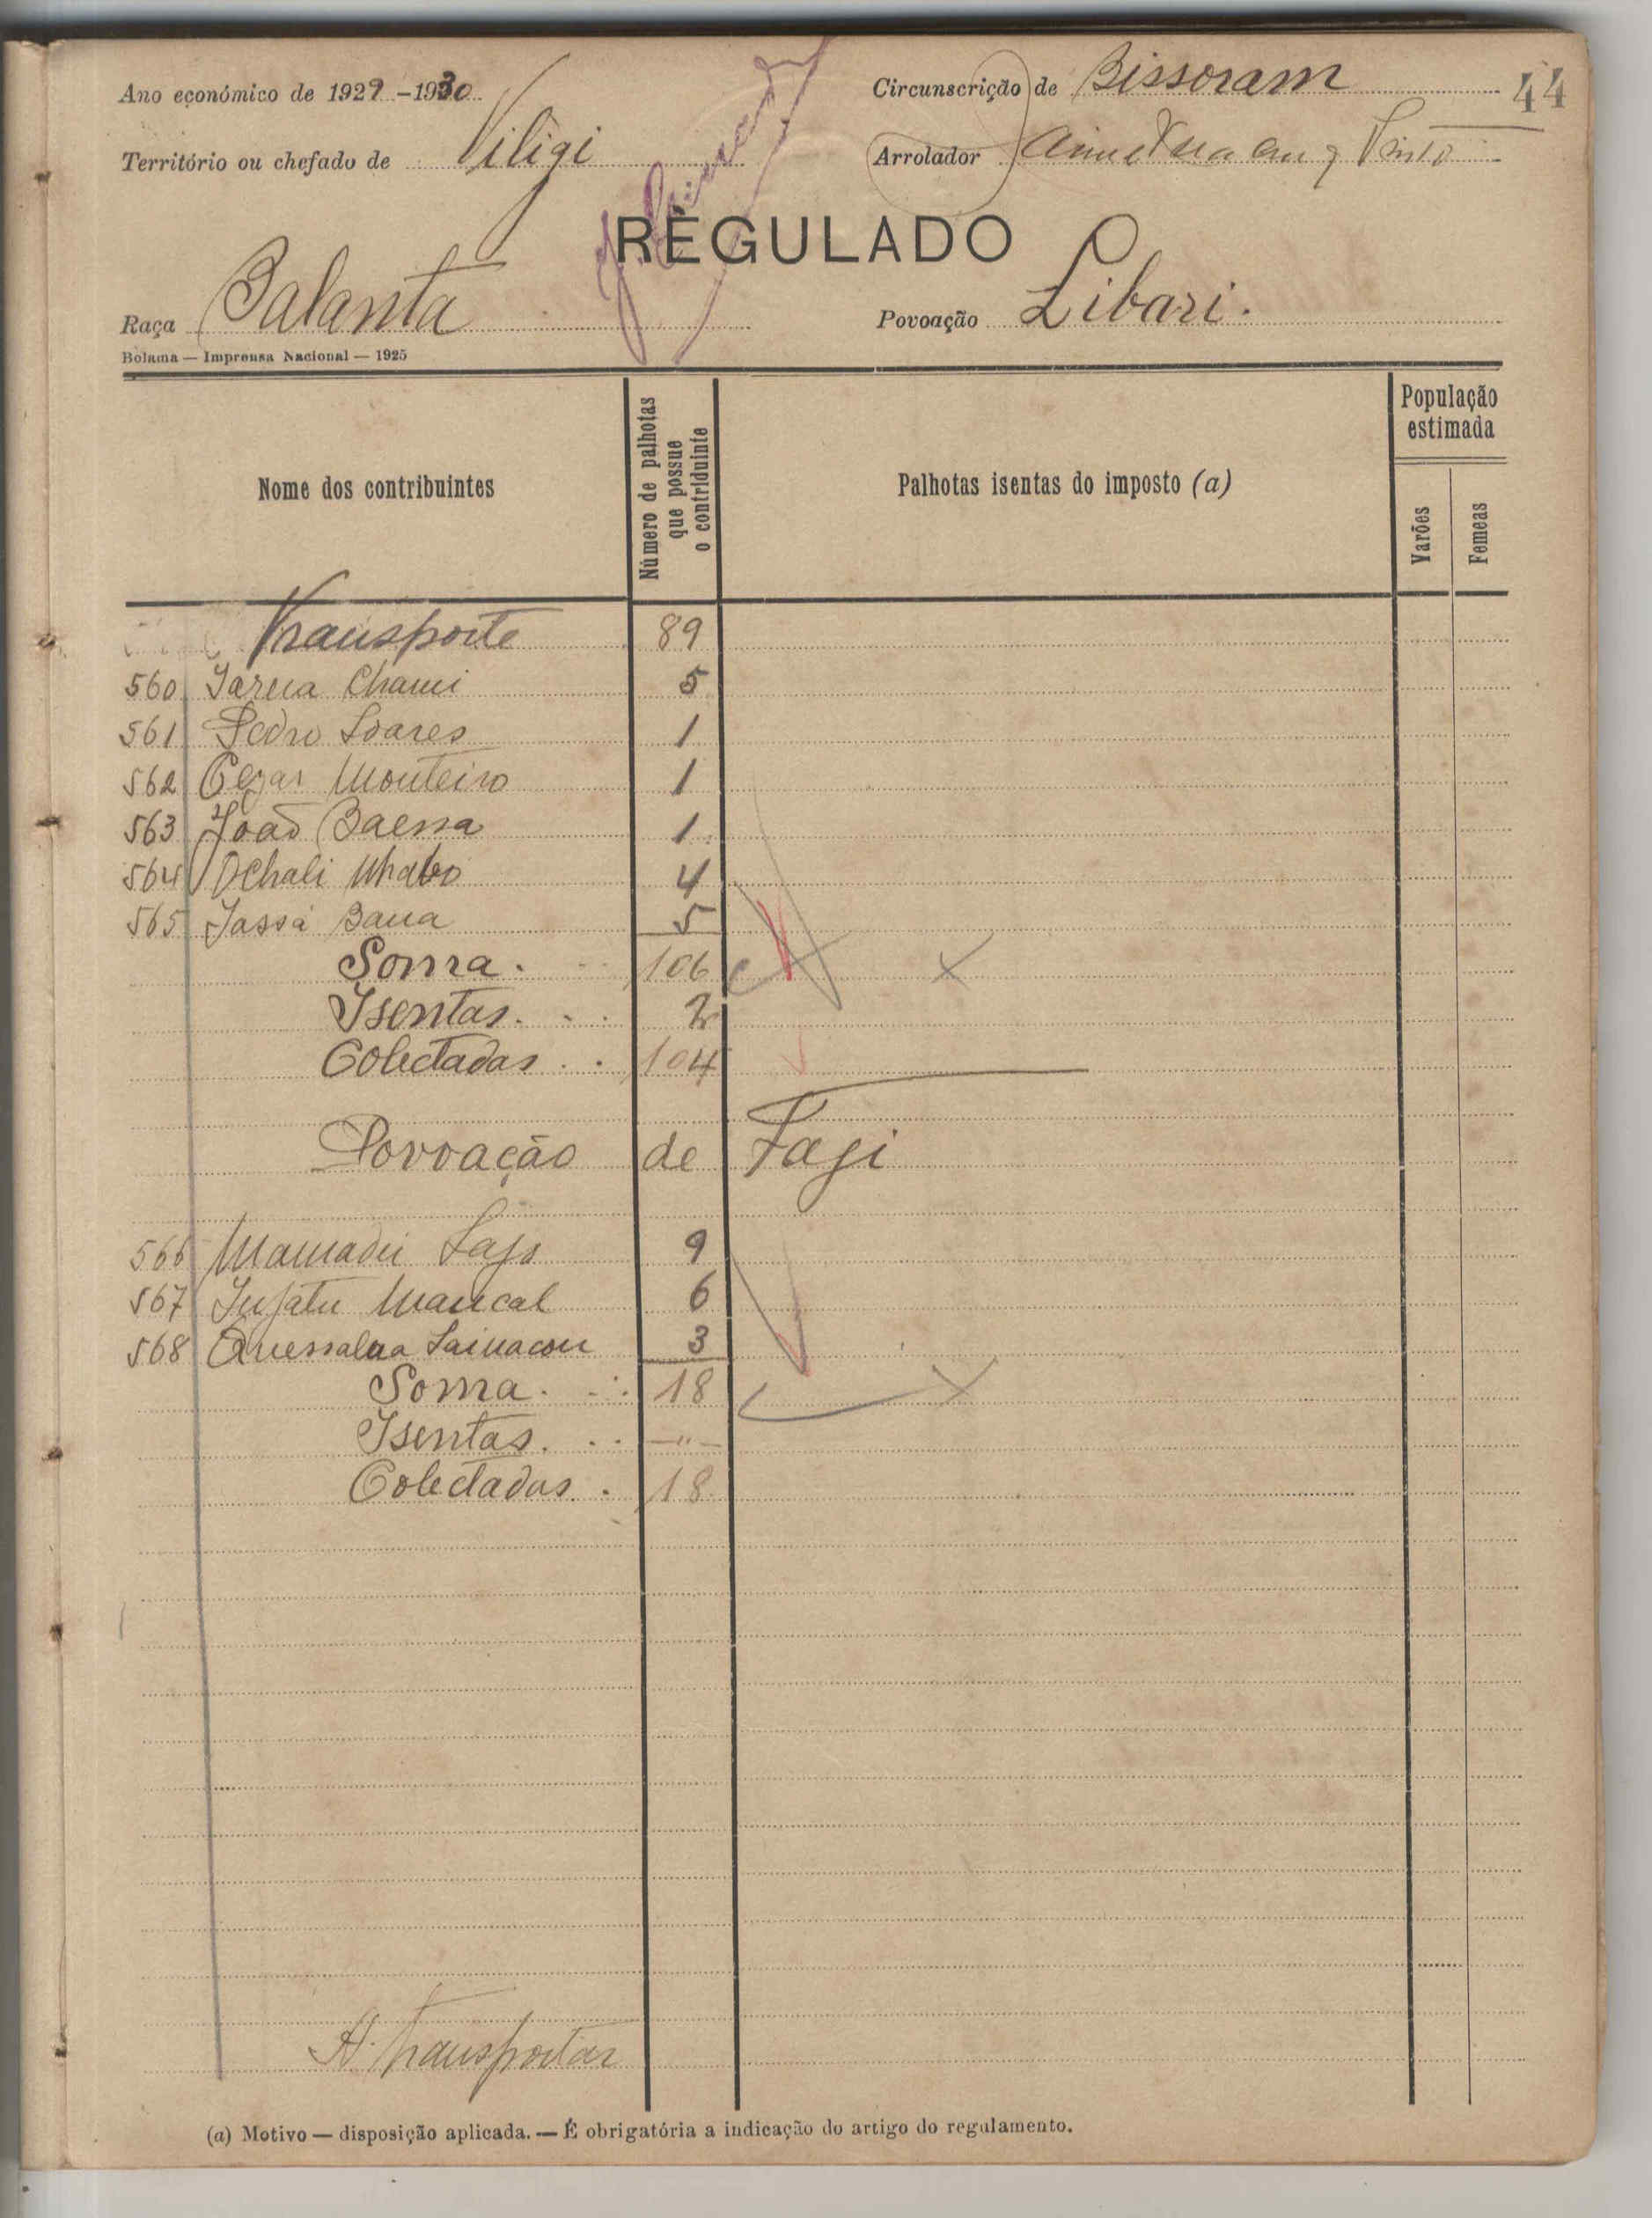 Ano económico de 1929-1930
Circunscrição de Bissoram
44
Território ou chefado de Viligi
Arrolador Pinto
REGULADO
Raça Balanta
Povoação Libari.
Bolama — Imprensa Nacional — 1925
Nome dos contribuintes
Número de palhotas que possue o contriduinte
Palhotas isentas do imposto (a)
População estimada
Varões
Femeas
Transporte 89
560 5
561 Pedro Soares 1
562 Cezar Monteiro 1
563 João Baessa 1
564 Dchali 4
565 Jassá Bana 5
Soma. 106
Isentas. 2
Colectadas. 104
Povoação de Faji
566 Mamadú 9
567 Mancal 6
568 3
Soma. 18
Isentas. —"—
Colectadas. 18
A transportar
(a) Motivo — disposição aplicada. — É obrigatória a indicação do artigo do regulamento.